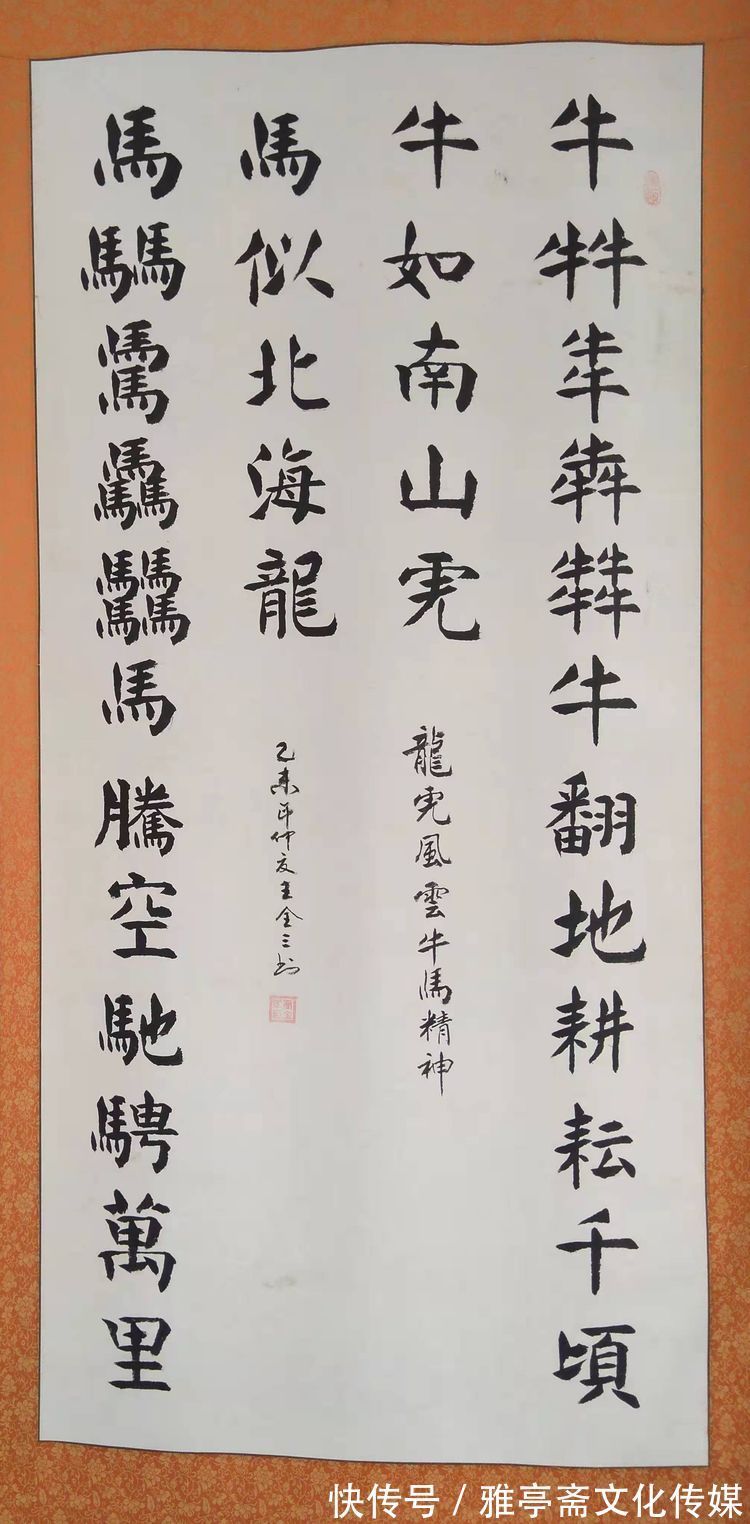 牛牪犇牛翻地耕耘千頃
牛如南山虎
龍虎風雲牛馬精神
馬似北海龍
乙未年仲夏王金三书
馬騳驫馬騰空馳騁萬里
快传号 / 雅亭斋文化传媒